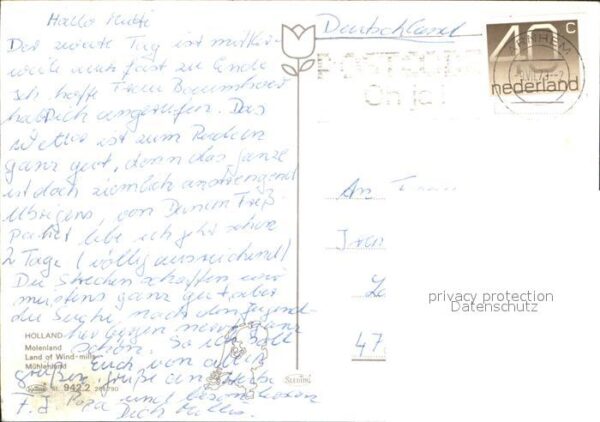 Hallo Mutti
Der zweite Tag ist mittler-
weile nun fast zu Ende
Ich hoffe Frau
hat Dich angerufen. Das
ist zum Radeln
ganz gut, denn das ganze
ist doch ziemlich anstrengend
Übrigens, von Deinem Freß-
Paket lebe ich jetzt schon
2 Tage (völlig ausreichend)
Die Strecken schaffen wir
meistens ganz gut, aber
die Suche nach den Jugend-
herbergen nervt ganz
schön. So ich soll
Euch von allen
grüßen, grüße
Papa und besonders
Dich
Deutschland
POSTCODE
Oh ja!
ARNHEM
40 c
nederland
An
47
HOLLAND
Molenland
Land of Wind-mills
Mühlenland
942.2
privacy protection
Datenschutz